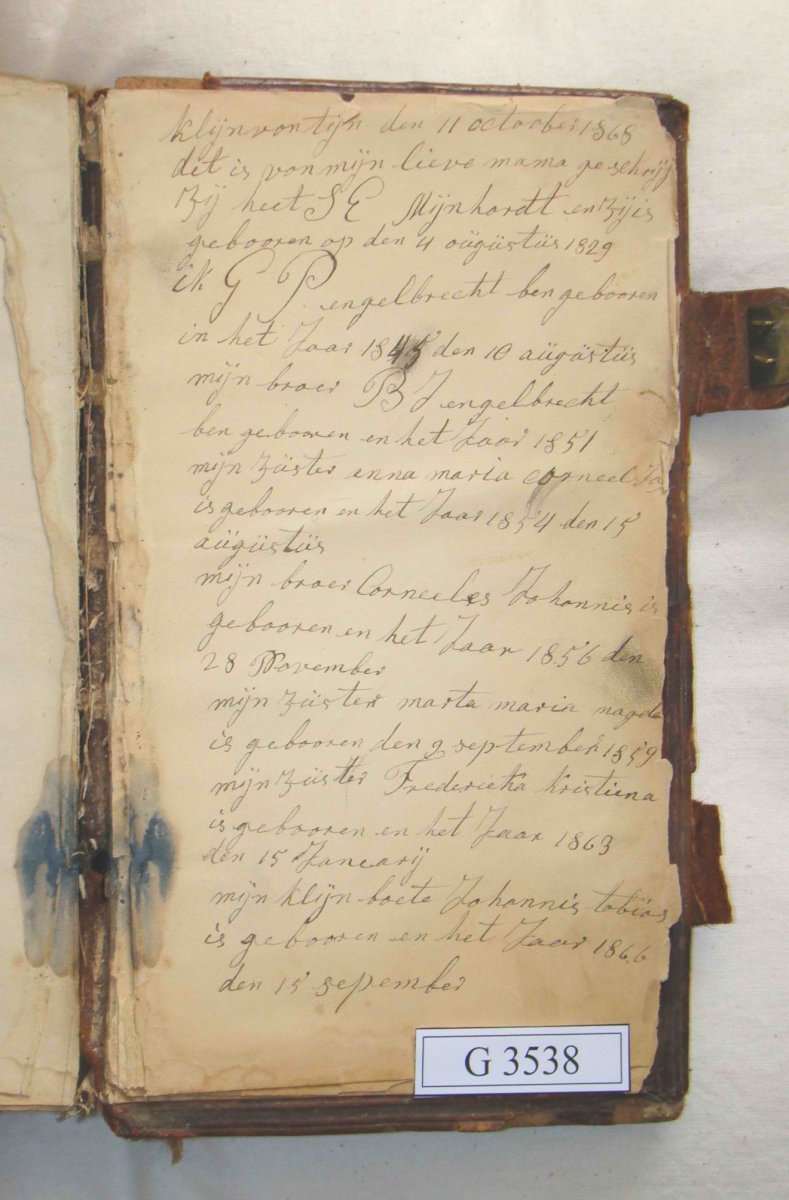 klijnvontijn den 11 october 1868
dit is von mijn lieve mama geschrijf
Zij heet S E Mijnhardt en Zij is
gebooren op den 4 aügüstüs 1829
ik G P engelbrecht ben gebooren
in het Jaar 1845 den 10 aügüstüs
mijn broer B J engelbrecht
ben gebooren en het Jaar 1851
mijn Züster anna maria corneel Ja
is gebooren en het Jaar 1854 den 15
aügüstüs
mijn broer Corneeles Johonnis is
gebooren en het Jaar 1856 den
28 November
mijn züster marta maria magda
is gebooren den 9 september 1859
mijn züster Frederieka kristiena
is gebooren en het Jaar 1863
den 15 Januarij
mijn klijn boete Johonnis tobïas
is gebooren en het Jaar 1866
den 15 sepember
G 3538